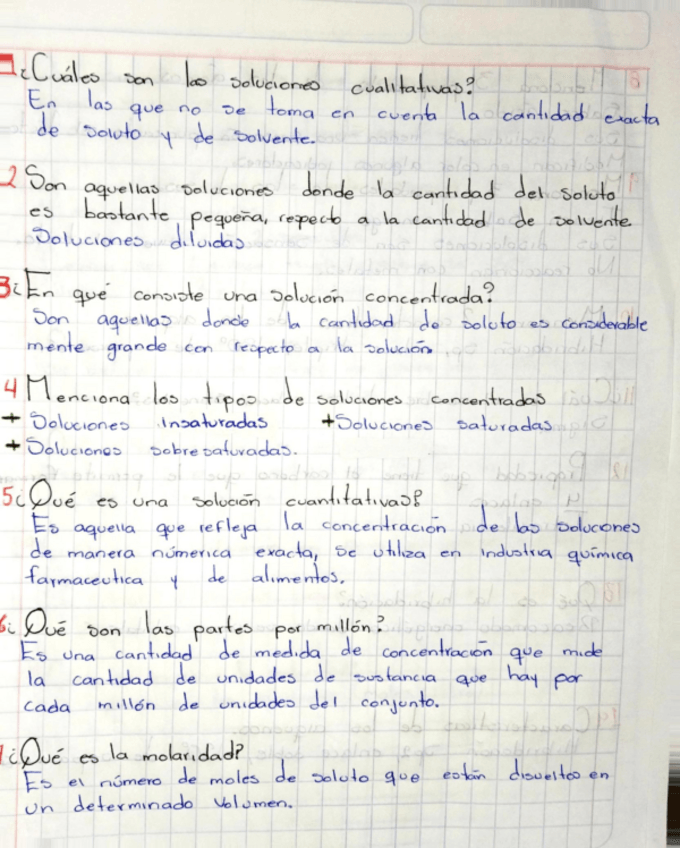 ¿Cuáles son las soluciones cualitativas?
En las que no se toma en cuenta la cantidad exacta
de soluto y de solvente.
2 Son aquellas soluciones donde la cantidad del soluto
es bastante pequeña, respecto a la cantidad de solvente.
Soluciones diluidas
3 ¿En qué consiste una solución concentrada?
Son aquellas donde la cantidad de soluto es considerable
mente grande con respecto a la solución
4 Menciona los tipos de soluciones concentradas
+ Soluciones insaturadas + Soluciones saturadas
+ Soluciones sobresaturadas.
5 ¿Qué es una solución cuantitativas?
Es aquella que refleja la concentración de las soluciones
de manera númerica exacta, se utiliza en industria química
farmaceutica y de alimentos.
¿Qué son las partes por millón?
Es una cantidad de medida de concentración que mide
la cantidad de unidades de sustancia que hay por
cada millón de unidades del conjunto.
¿Qué es la molaridad?
Es el número de moles de soluto que están disueltos en
un determinado volumen.